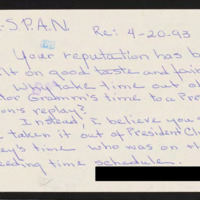 .S.P.A.N. Re: 4-20-93
Your reputation has b
ilt on good taste and fair
Why take time out of
tor Gramm's time to a Pre
on's replay?
Instead, I believe you s
e taken it out of President Cli
ey's time who was on
eeding time schedule.